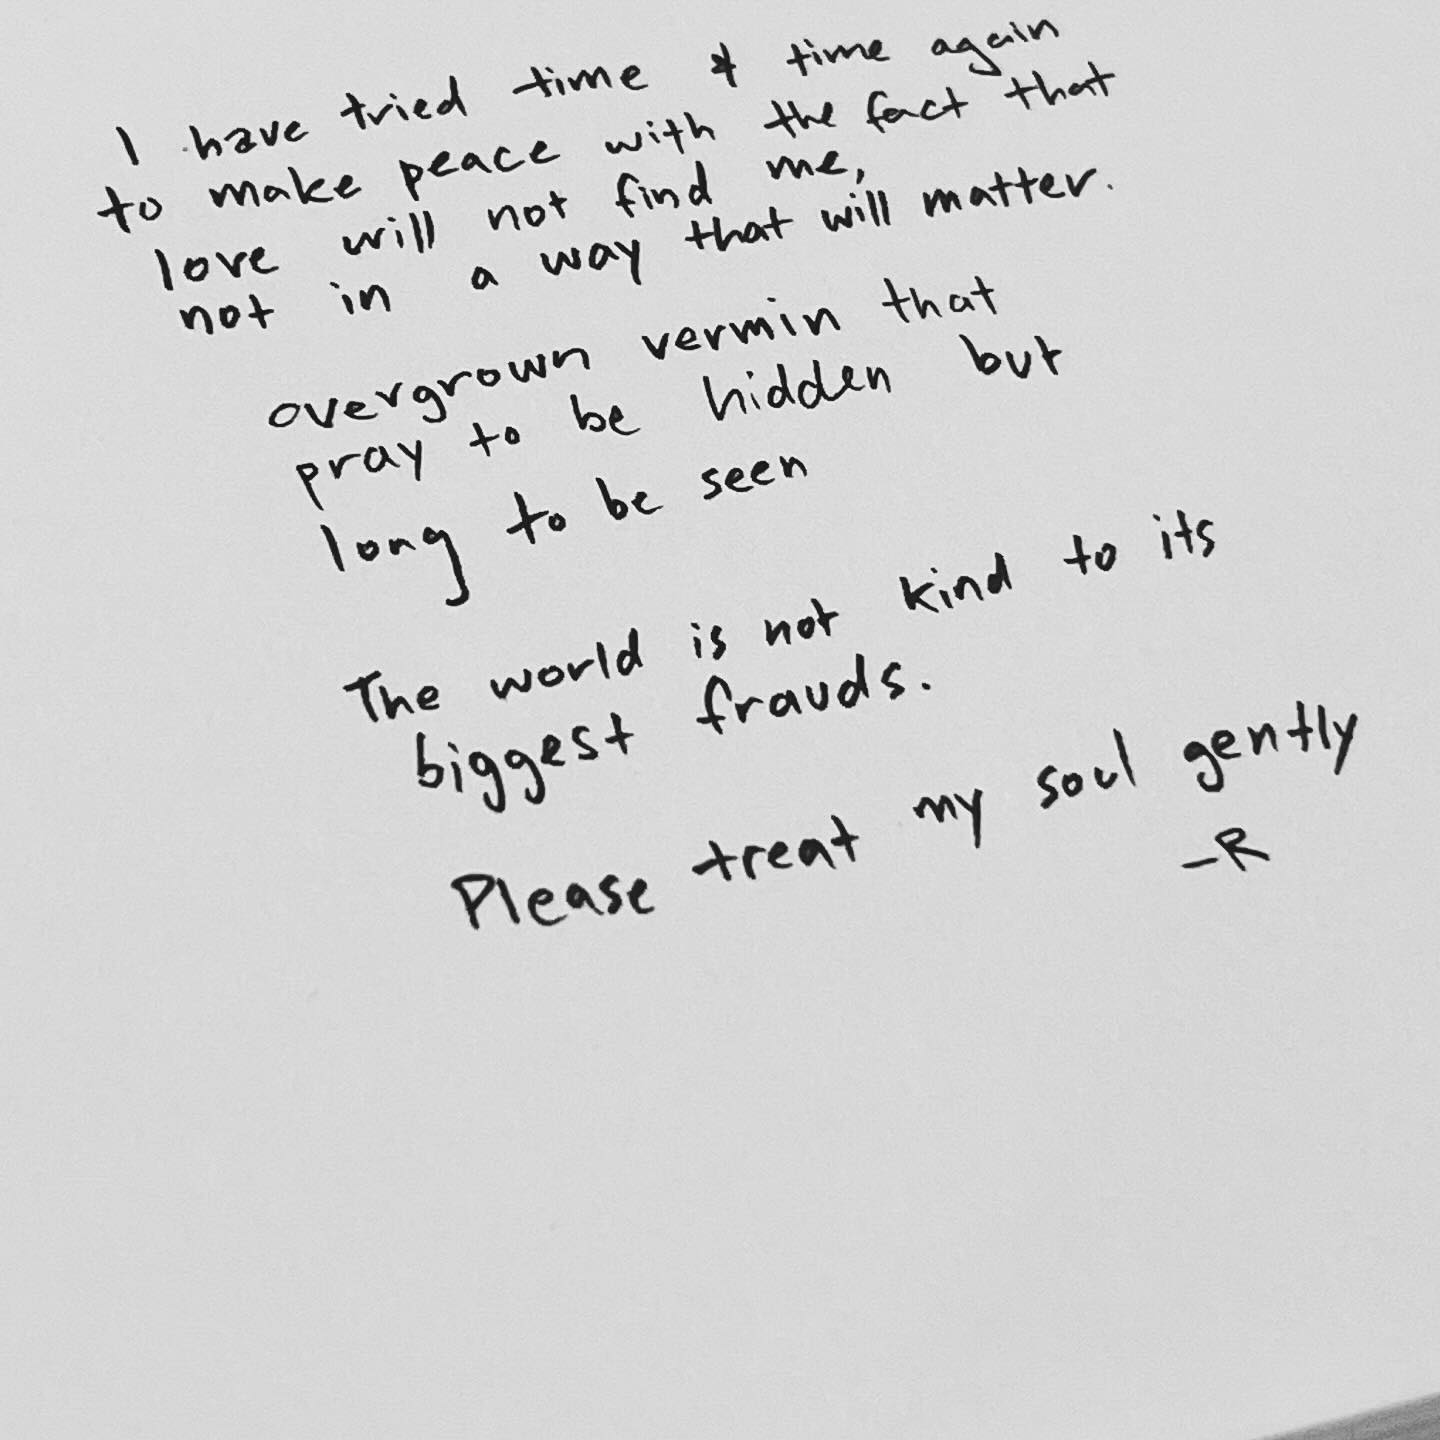 I have tried time & time again
to make peace with the fact that
love will not find me,
not in a way that will matter.
overgrown vermin that
pray to be hidden but
long to be seen
The world is not kind to its
biggest frauds.
Please treat my soul gently
-R